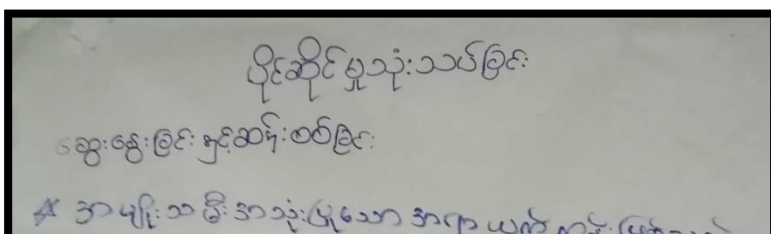 ပိုင်ဆိုင်မှုသုံးသပ်ခြင်း
ဆွေးနွေးခြင်း နှင့်ဆန်းစစ်ခြင်း
အမျိုးသမီးအသုံးပြုသော အရာ